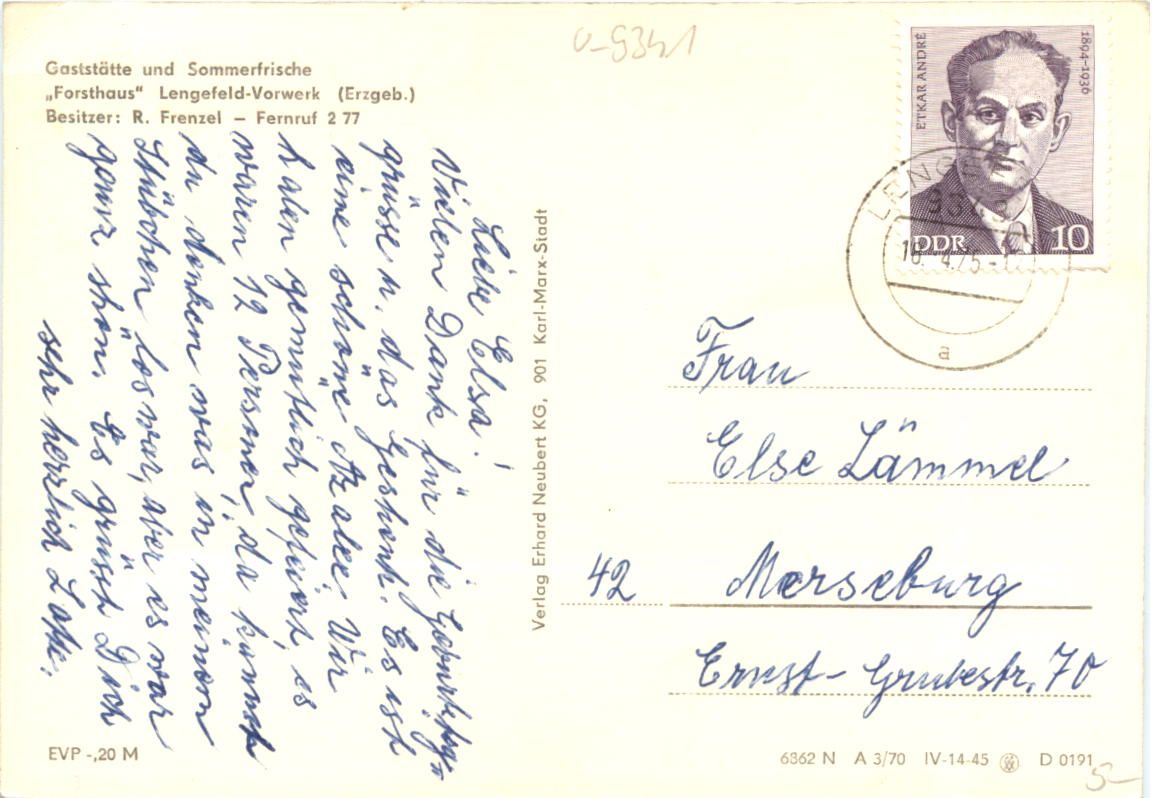 Gaststätte und Sommerfrische
„Forsthaus" Lengefeld-Vorwerk (Erzgeb.)
Besitzer: R. Frenzel – Fernruf 2 77
Liebe Elsa!
Vielen Dank für die Geburtstags
grüsse u. das Geshenk. Es ist
eine schöne Azalee. Wir
haben gemütlich gefeiert, es
waren 12 Personen, da kannst
du denken was in meinen
Stübchen los war, aber es war
ganz shön. Es grüsst Dich
sehr herzlich Lotte.
EVP -,20 M
Verlag Erhard Neubert KG, 901 Karl-Marx-Stadt
ETKAR ANDRÉ
1894-1936
DDR 10
LENGEFE
9343
a
Frau
Else Lämmel
42 Merseburg
Ernst-Grubestr. 70
6362 N A 3/70 IV-14-45 D 0191